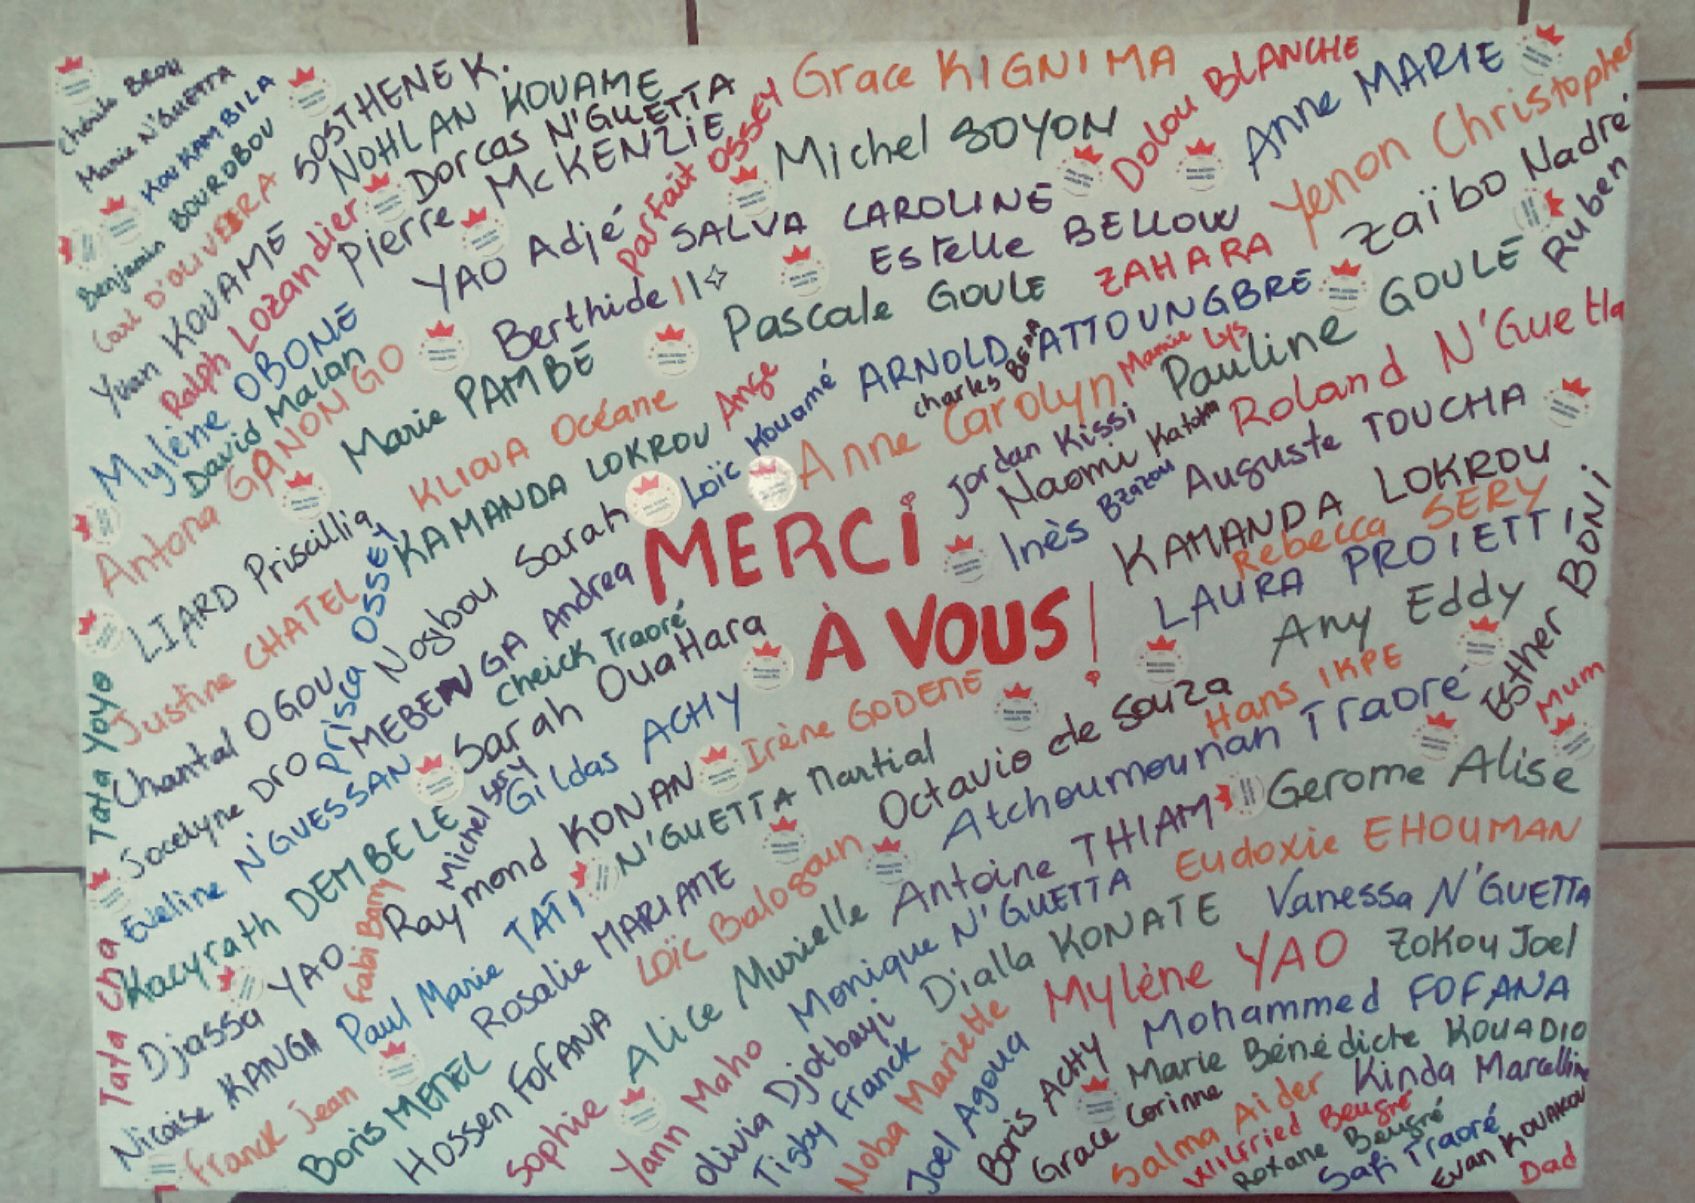 Marie N'GUETTA
KOUKAMBILA
Benjamin BOUROBOU
Carl D'OLIVEIRA
Yvan KOUAME
Ralph Lozandier
Mylène OBONE
David Malan
Antona GANONGO
SOSTHENE K.
NOHLAN KOUAME
Dorcas N'GUETTA
Pierre McKENZIE
YAO Adjé
Parfait OSSEY
Berthide 11
Marie PAMBÉ
Grace KIGNIMA
Michel SOYON
SALVA CAROLINE
Dolou BLANCHE
Anne MARIE
Estelle BELLOW
Yenon Christopher
Zaïbo Nadré
Ruben
Pascale GOULE
ZAHARA
ARNOLD ATTOUNGBRE
Pauline GOULE
Mamie Lys
Roland N'Guetta
KLIOUA Océane
KAMANDA LOKROU
Ange
Loïc Kouamé
Anne Carolyn
Jordan Kissi
Naomi
Inès
Auguste TOUCHA
LIARD Priscillia
Justine CHATEL
Prisca OSSEY
Nogbou Sarah
MEBENGA Andrea
MERCI
À VOUS !
KAMANDA LOKROU
Rebecca SERY
LAURA PROIETTI
Any Eddy
Esther BONI
Mum
Tata Yoyo
Chantal OGOU
Cheick Traoré
Sarah OuaHara
Jocelyne DRO
Eveline N'GUESSAN
Gildas ACHY
Irène GODEME
Hans IKPE
Octavio de Souza
Atchoumounan Traoré
Gerome Alise
Kacyrath DEMBELE
Raymond KONAN
N'GUETTA Martial
Antoine THIAM
Eudoxie EHOUMAN
Tata Cha
Djassa YAO
Fabi Barry
Paul Marie TATI
Rosalie MARIANE
Loïc Balogoun
Alice Murielle
Monique N'GUETTA
Vanessa N'GUETTA
Dialla KONATE
Mylène YAO
ZOKOU Joel
Nicaise KANGA
Franck Jean
Boris MEMEL
Hossen FOFANA
Sophie
Yann Maho
Olivia Djotbayi
Tigby Franck
Noba Mariette
Joel Agoua
Boris ACHY
Mohammed FOFANA
Marie Bénédicte KOUADIO
Grace Corinne
Salma Aider
Kinda Marcelline
Wilfried Beugré
Roxane Beugré
Safi Traoré
Evan KOUAKOU
Dad